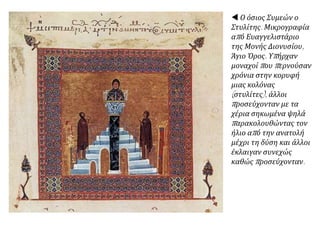 ◀ Ο όσιος Συμεών ο
Στυλίτης. Μικρογραφία
από Ευαγγελιστάριο
της Μονής Διονυσίου,
Άγιο Όρος. Υπήρχαν
μοναχοί που περνούσαν
χρόνια στην κορυφή
μιας κολόνας
(στυλίτες), άλλοι
προσεύχονταν με τα
χέρια σηκωμένα ψηλά
παρακολουθώντας τον
ήλιο από την ανατολή
μέχρι τη δύση και άλλοι
έκλαιγαν συνεχώς
καθώς προσεύχονταν.